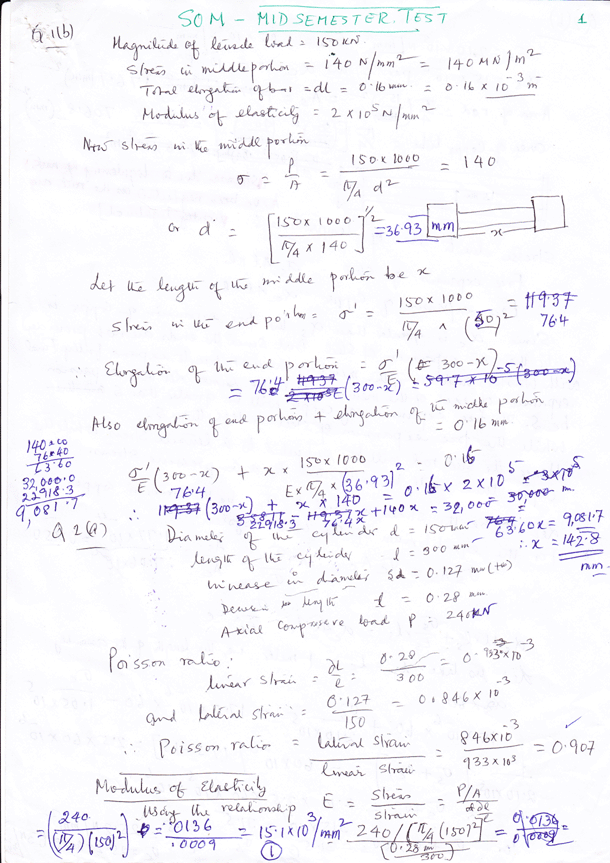 SOM - MID SEMESTER TEST 1
Q 1(b)
Magnitude of tensile load = 150 KN.
Stress in middle portion = 140 N/mm² = 140 MN/m²
Total elongation of bar = dl = 0.16 mm = 0.16 × 10⁻³ m
Modulus of elasticity = 2 × 10⁵ N/mm²
Now stress in the middle portion
σ = P/A = 150 × 1000 / π/4 d² = 140
or d = [150 × 1000 / π/4 × 140]^1/2 = 36.93 mm x
Let the length of the middle portion be x
Stress in the end portion = σ' = 150 × 1000 / π/4 × (50)² = 119.37
76.4
∴ Elongation of the end portion = σ'/E (300-x)
= 76.4 119.37 / 2×10⁵ E (300-x) = 59.7 × 10⁻⁵ (300-x)
Also elongation of end portions + elongation of the middle portion
= 0.16 mm.
140×00
76×40
63.60
32,000.0
22918.3
9,081.7
σ'/E (300-x) + x × 150 × 1000 / E × π/4 × (36.93)² = 0.16
76.4
119.37 (300-x) + x × 140 = 0.16 × 2 × 10⁵ = 3×10⁵
22918.3 - 76.4x + 140x = 32,000 = 30,000
63.60x = 9,081.7
∴ x = 142.8
mm
Q 2(a)
Diameter of the cylinder d = 150 mm
length of the cylinder l = 300 mm
increase in diameter δd = 0.127 mm (+)
Decrease in length = 0.28 mm
Axial compressive load P = 240 KN
Poisson ratio:
linear strain = δl/l = 0.28/300 = 0.933 × 10⁻³
and lateral strain = 0.127/150 = 0.846 × 10⁻³
∴ Poisson ratio = lateral strain / linear strain = 846×10⁻³ / 933×10³ = 0.907
Modulus of Elasticity
Using the relationship E = Stress / Strain = P/A
= (240 / (π/4)(150)²) = .0136 / .0009 = 15.1×10³/mm² 240/(π/4 (150)²) / (0.28 / 300) = 0.0136 / 0.0009 =
1